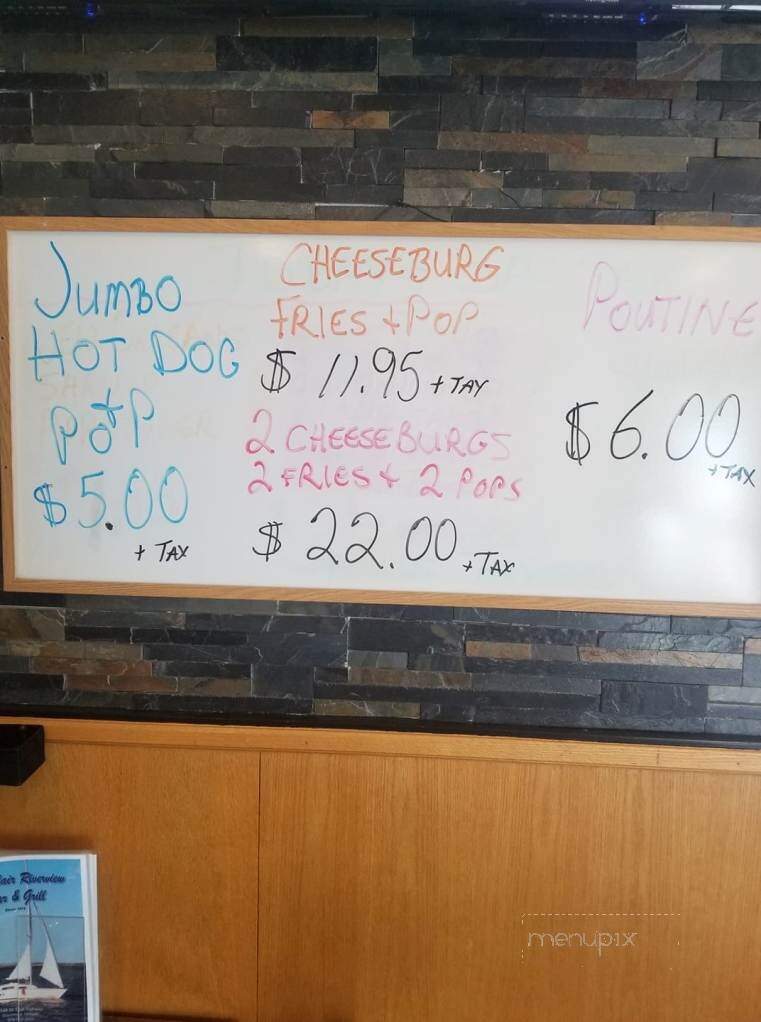 JUMBO
HOT DOG
+
POP
$5.00
+ TAX
CHEESEBURG
FRIES + POP
$ 11.95 + TAX
2 CHEESEBURGS
2 FRIES + 2 POPS
$ 22.00 + TAX
POUTINE
$6.00
+ TAX
air Riverview
& Grill
menupix